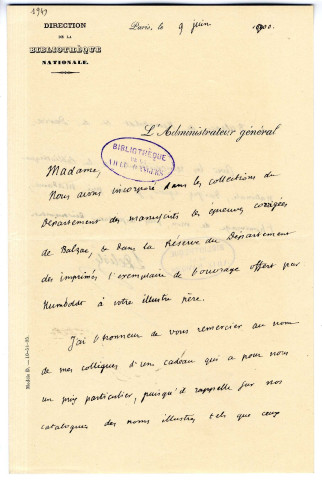 1949
DIRECTION
DE LA
BIBLIOTHÈQUE
NATIONALE.
Paris, le 9 juin 1900.
L'Administrateur général
BIBLIOTHEQUE
DE LA
Madame,
Nous avons incorporé dans les collections du
Département des manuscrits les épreuves corrigées
de Balzac, et dans la Réserve du Département
des imprimés l'exemplaire de l'ouvrage offert par
Humboldt à votre illustre père.
J'ai l'honneur de vous remercier au nom
de mes collègues d'un cadeau qui a pour nous
un prix particulier, puisqu'il rappelle sur nos
catalogues des noms illustres tels que ceux